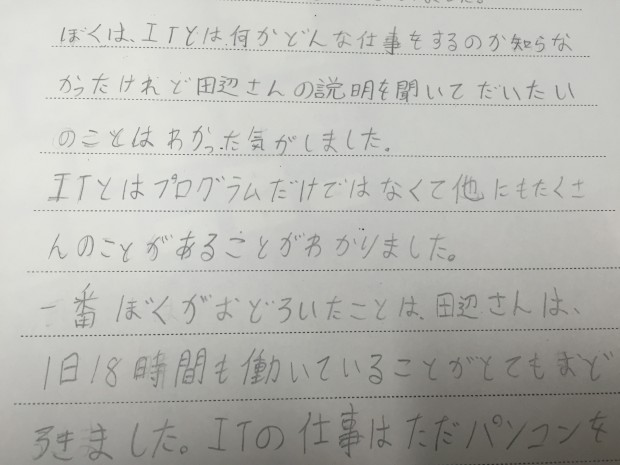 ぼくは、ITとは何かどんな仕事をするのか知らな
かったけれど田辺さんの説明を聞いてだいたい
のことはわかった気がしました。
ITとはプログラムだけではなくて他にもたくさ
んのことがあることがわかりました。
一番ぼくがおどろいたことは、田辺さんは、
1日18時間も働いていることがとてもおど
ろきました。ITの仕事はただパソコンを